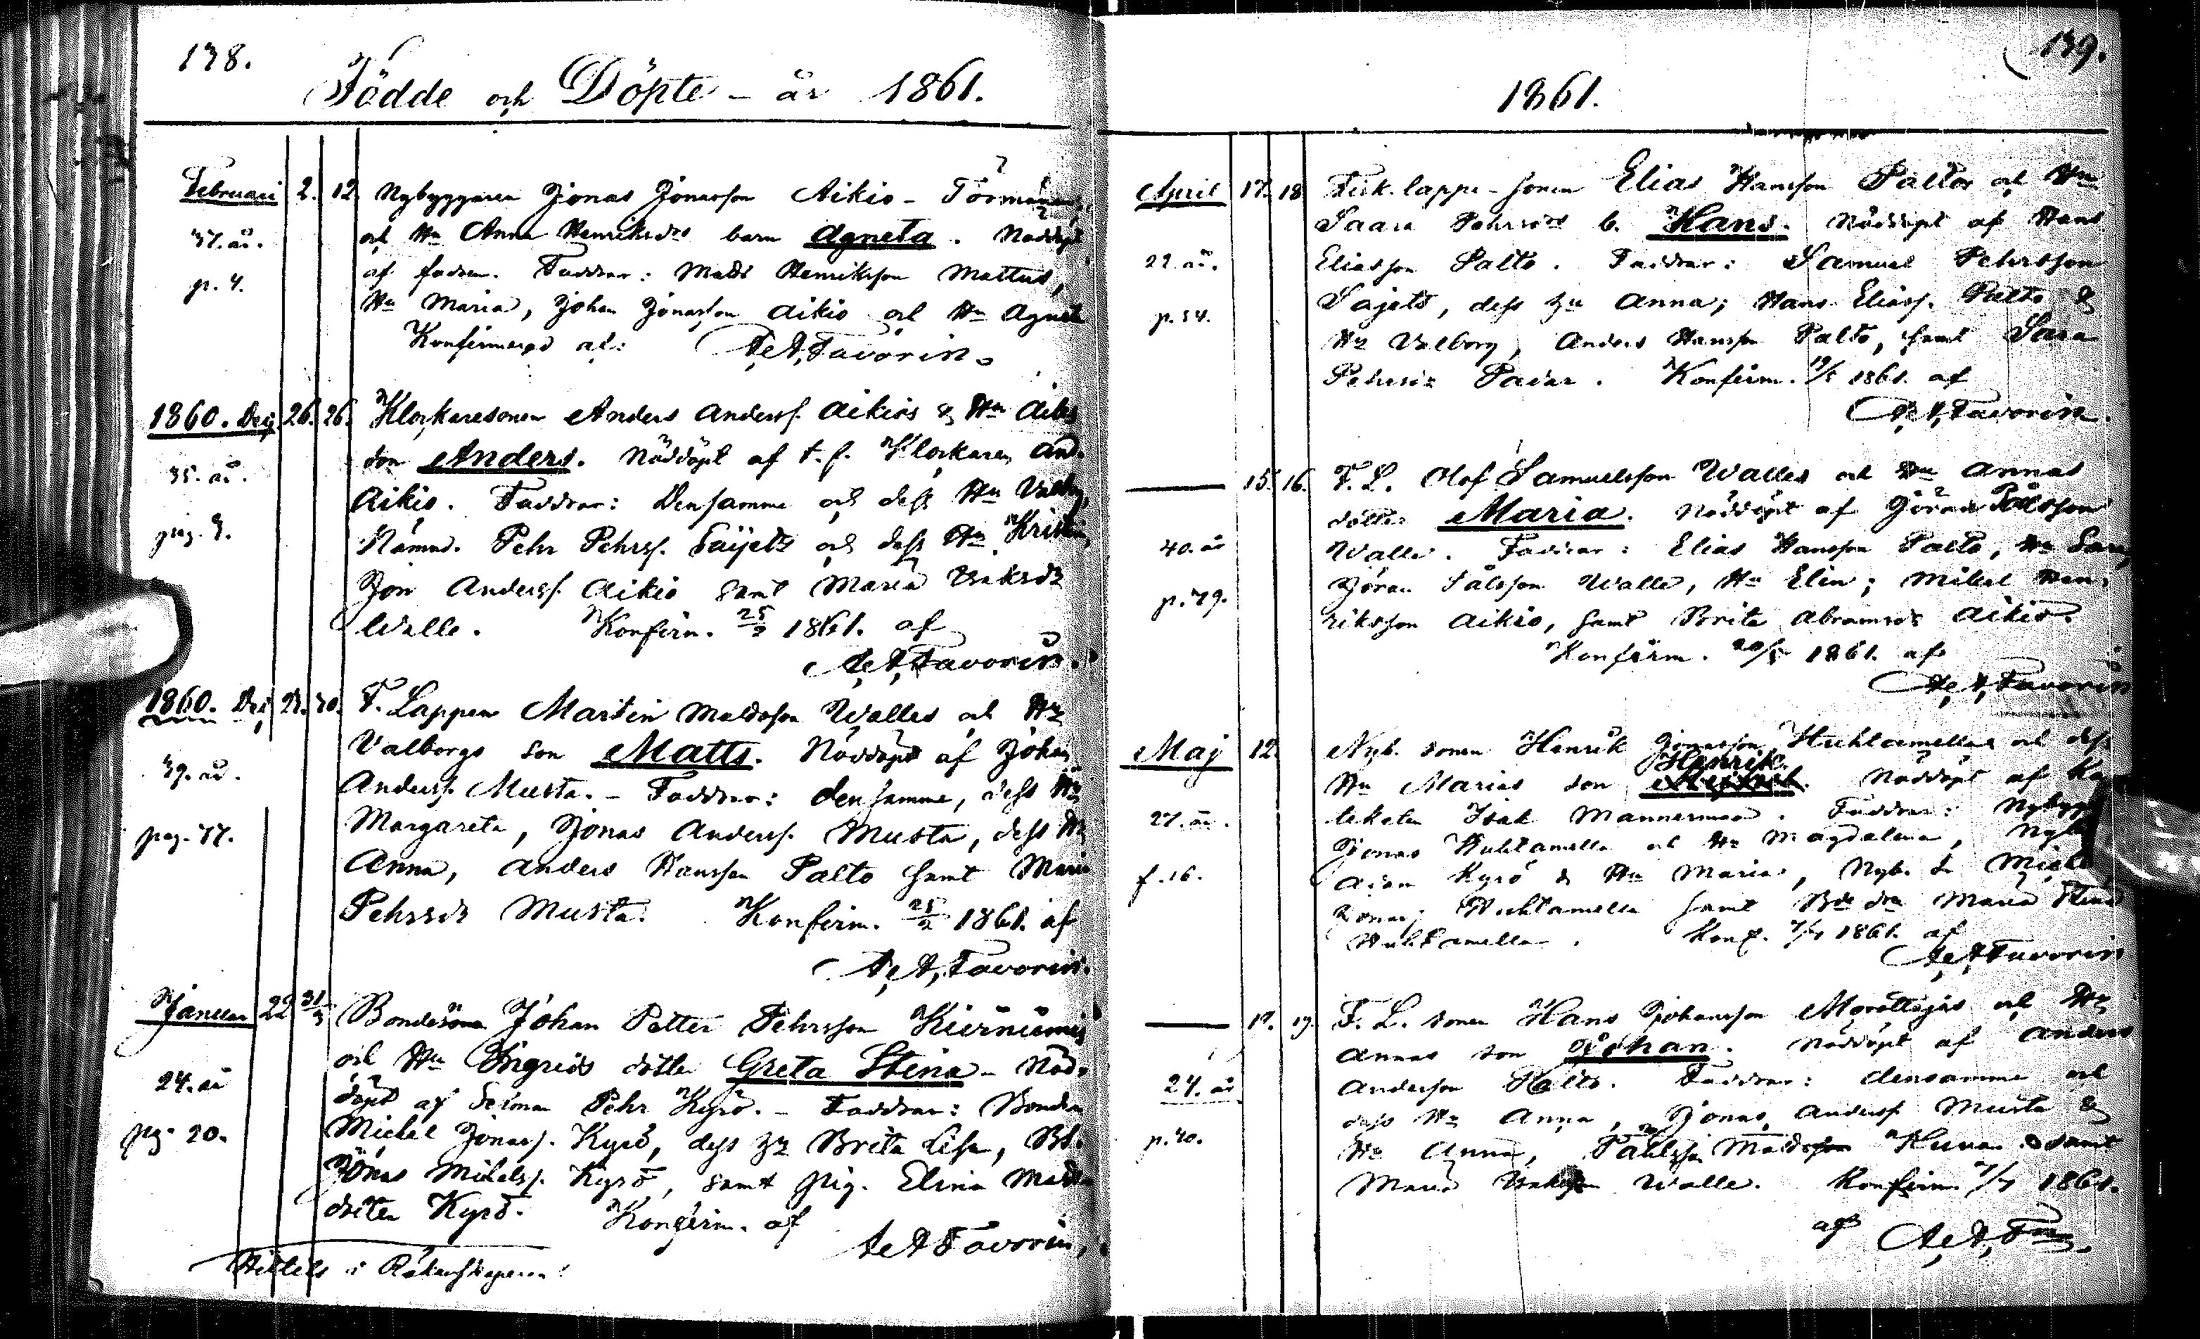 138.
Födde och Döpte - år 1861.
Februari 2. 12. Nybyggaren Jonas Jonasson Aikio -
37. år. och Hu Anna Henriksdrs barn Agneta. Nöddöpt
p. 4. af fadren. Faddrar: Matts Henriksson Mattus,
Hu Maria, Johan Jonasson Aikio och Hu Agneta
Konfirmerad af: A. A. Favorin.
1860. Dec. 26. 26. Klockaresonen Anders Anderss. Aikios & Hu
35. år. son Anders. Nöddöpt af t. f. Klockaren And.
Aikio. Faddrar: Densamme och dess Hu Valbg,
pag. 9. Nämnd. Pehr Pehrss. Saijets och dess Hu Kristin,
Jon Anderss. Aikio samt Maria
Walle. Konfirm. 25/2 1861. af
A. A. Favorin.
1860. Dec. 30. F. Lappen Martin Mattsson Walles och Hu
Valborgs son Matts. Nöddöpt af Johan
39. år. Anderss. Musta. - Faddrar: densamme, dess Hu
pag. 77. Margareta, Jonas Anderss. Musta, dess Hu
Anna, Anders Hansson Palto samt Maria
Pehrsdr Musta. Konfirm. 25/2 1861. af
A. A. Favorin.
Januari 22 31/3 Bondesonen Johan Petter Pehrsson Kierniemis
och Hu Ingrids dotter Greta Stina - Nöd-
24. år döpt af Pehr Kyrö. - Faddrar: Bonden
pag. 20. Michel Jonass. Kyrö, dess Hu Brita Lisa, Bd.
Jonas Mikelss. Kyrö, samt pig. Elina Matts
dotter Kyrö. Konfirm. af
A. A. Favorin.
Hittils i Räkenskaperna!
139.
1861.
April 17. 18. Fisk. lapp-sonen Elias Hansson Paltos och Hu
Saara Pehrsdrs b. Hans. Nöddöpt af Hans
22. år. Eliasson Palto. Faddrar: Samuel Pehrsson
Sajets, dess Hu Anna; Hans Eliass. Palto &
p. 54. Hu Valborg, Anders Hansson Palto, samt Sara
Pehrsdr Padar. Konfirm. 19/5 1861. af
A. A. Favorin.
15. 16. F. L. Olof Samuelsson Walles och Hu Annas
dotter Maria. Nöddöpt af Göran Pålsson
40. år Walle. Faddrar: Elias Hansson Palto, Hu Sara,
p. 79. Göran Pålsson Walle, Hu Elin; Mikel Hen-
riksson Aikio, samt Brita Abramsdr Aikio.
Konfirm. 20/5 1861. af
A. A. Favorin
Maj 12. Nyb. sonen Henrik Jonasson Huhtamellas och dess
Henrik.
Hu Marias son Nöddöpt af Ka-
27. år. teketen Isak Mannermaa. Faddrar: Nybygg
Jonas Huhtamella och Hu Magdalena, Nyb
f. 16. Adam Kyrö & Hu Maria, Nyb. s. Mickel
Jonass. Huhtamella samt Maria Stina
Huhtamella. Konf. 7/7 1861. af
A. A. Favorin
17. 19. F. L. sonen Hans Johansson Morottajas och Hu
Annas son Johan. Nöddöpt af Anders
24. år Andersson Palto. Faddrar: densamme och
dess Hu Anna, Jonas Anderss. Musta &
p. 40. Hu Anna, Påhl Mattsson Kuuva samt
Maria Walle. Konfirm. 7/7 1861.
af A. A. Fav.